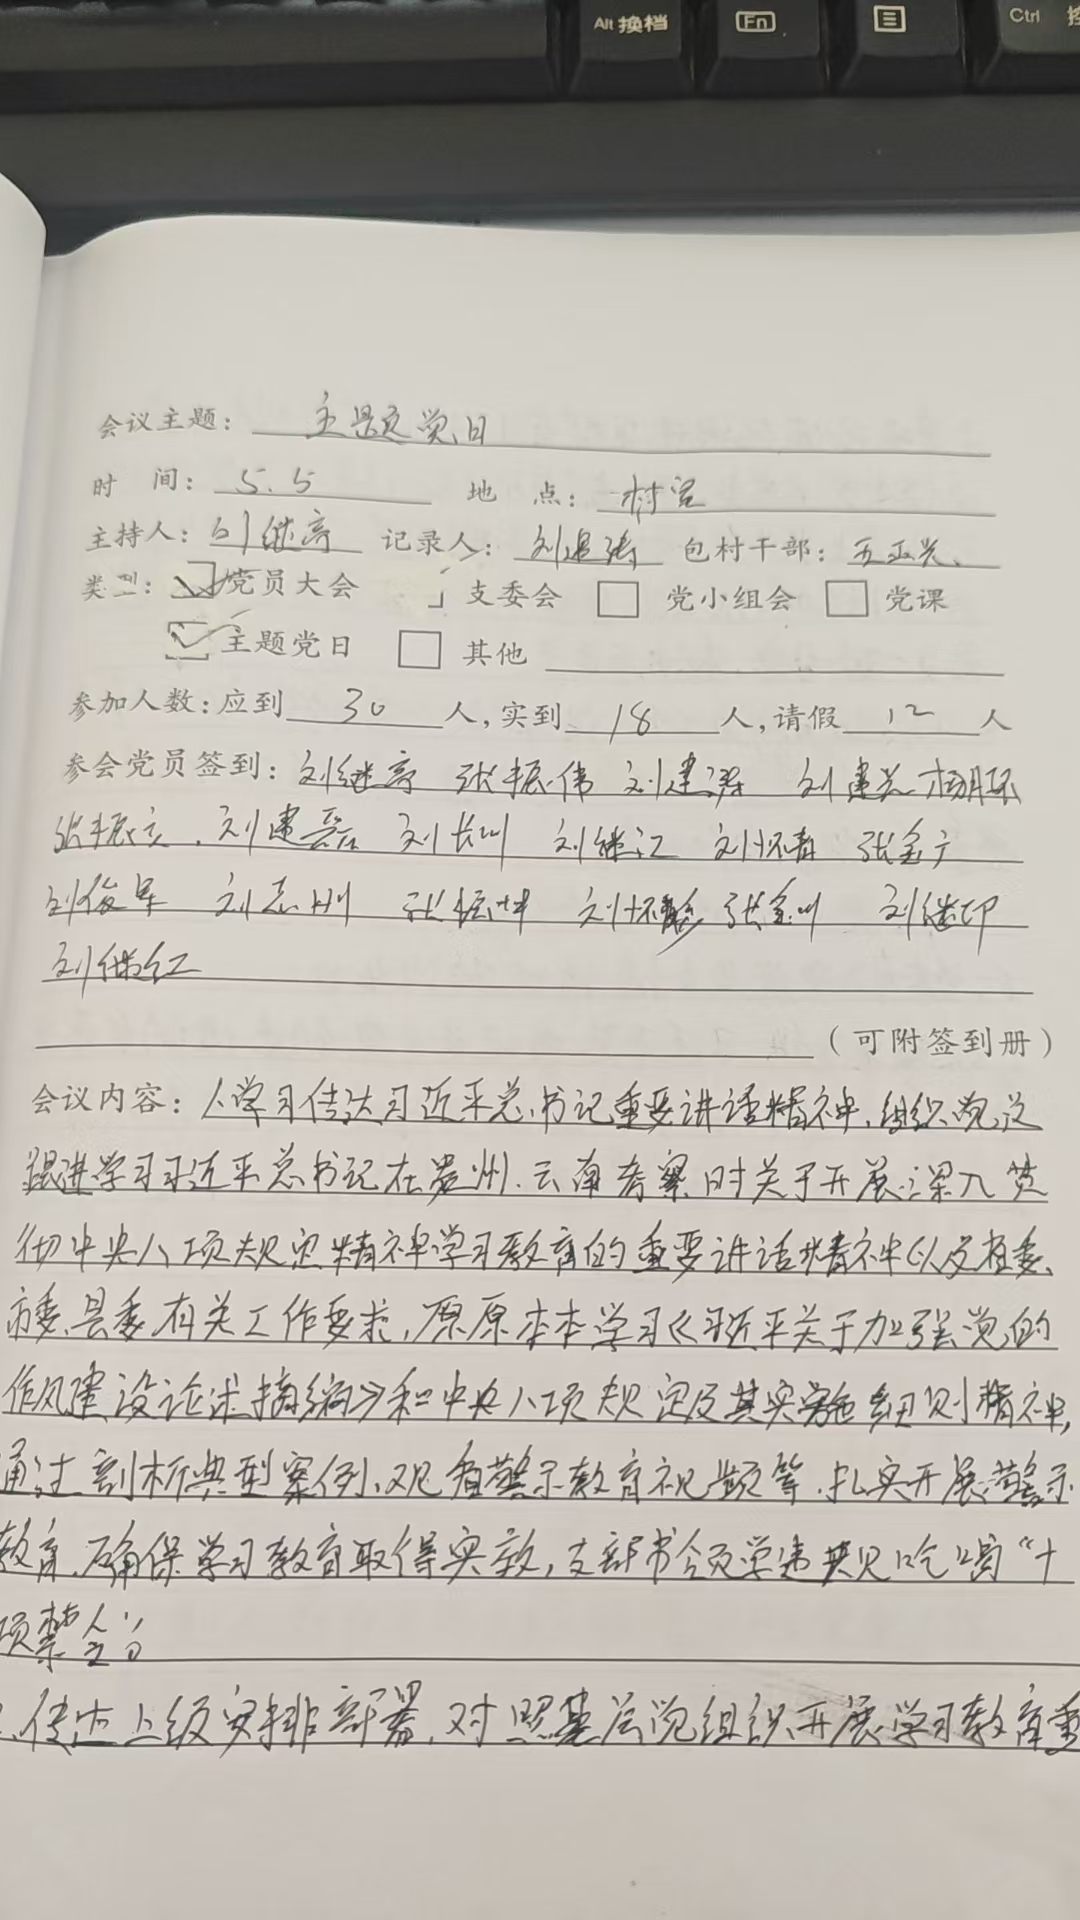 Alt 换档 Fn Ctrl
会议主题: 主题党日
时 间: 5.5 地 点: 村室
主持人: 刘继高 记录人: 刘建涛 包村干部: 王正兴
类型: 党员大会 支委会 党小组会 党课
主题党日 其他
参加人数: 应到 30 人, 实到 18 人, 请假 12 人
参会党员签到: 刘继高 张振伟 刘建涛 刘建兴
张振立 刘建磊 刘长川 刘继江 刘怀青 张金广
刘俊军 刘志刚 张振坤 张金川 刘继印
刘继红
(可附签到册)
会议内容: 1、学习传达习近平总书记重要讲话精神, 组织党员
跟进学习习近平总书记在贵州、云南考察时关于开展深入贯
彻中央八项规定精神学习教育的重要讲话精神以及省委、
市委、县委有关工作要求, 原原本本学习《习近平关于加强党的
作风建设论述摘编》和中央八项规定及其实施细则精神,
通过剖析典型案例、观看警示教育视频等, 扎实开展警示
教育, 确保学习教育取得实效, 支部书领学违规吃喝“十
项禁令”
2、传达上级安排部署, 对照基层党组织开展学习教育重